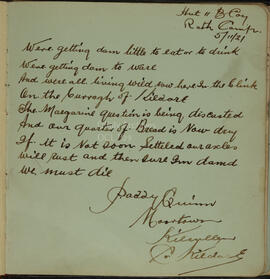 Hut 11 B Coy
Rath Camp.
5/11/21
Were getting dam little to eat or to drink
Were getting dam to ware
And were all living wild now here in the Clink
On the Curragh of Kildare
The Margarine Question is being discusted
And our quarter of Bread is Now dry
If It is Not Soon Settled our axles
will rust and then Sure Im damd
we must die
Paddy Quinn
Moortown
Kilcullen
Co Kildare